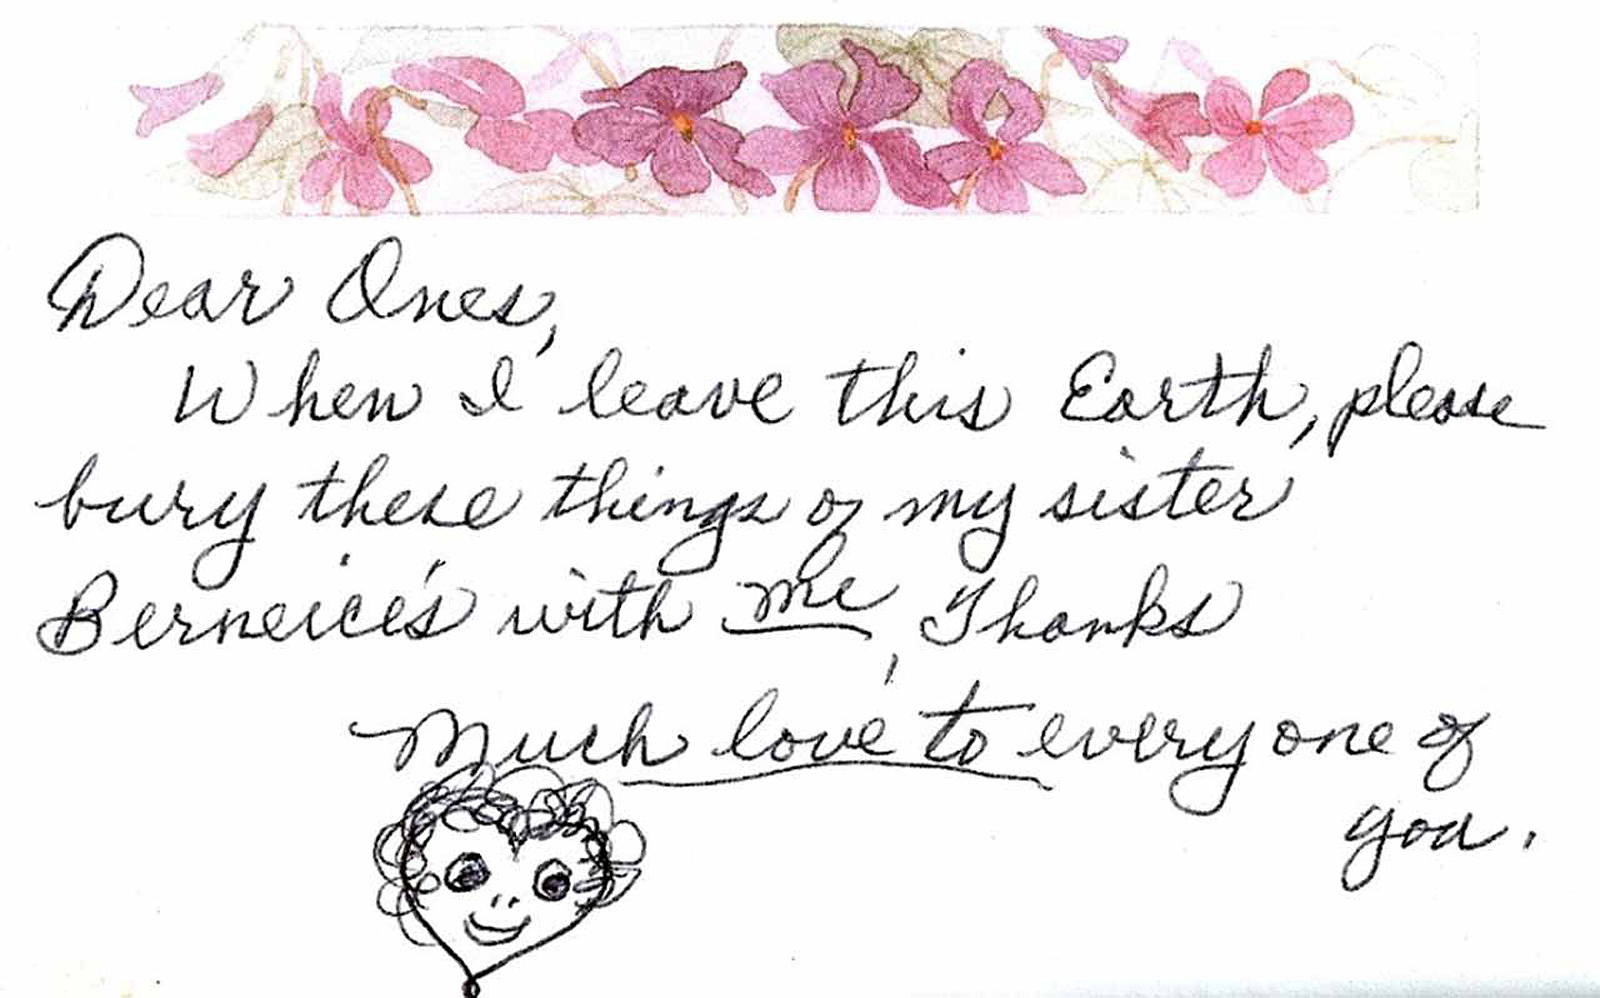 Dear Ones,
When I leave this Earth, please
bury these things of my sister
Berneice's with me, Thanks
Much love to everyone of
you.